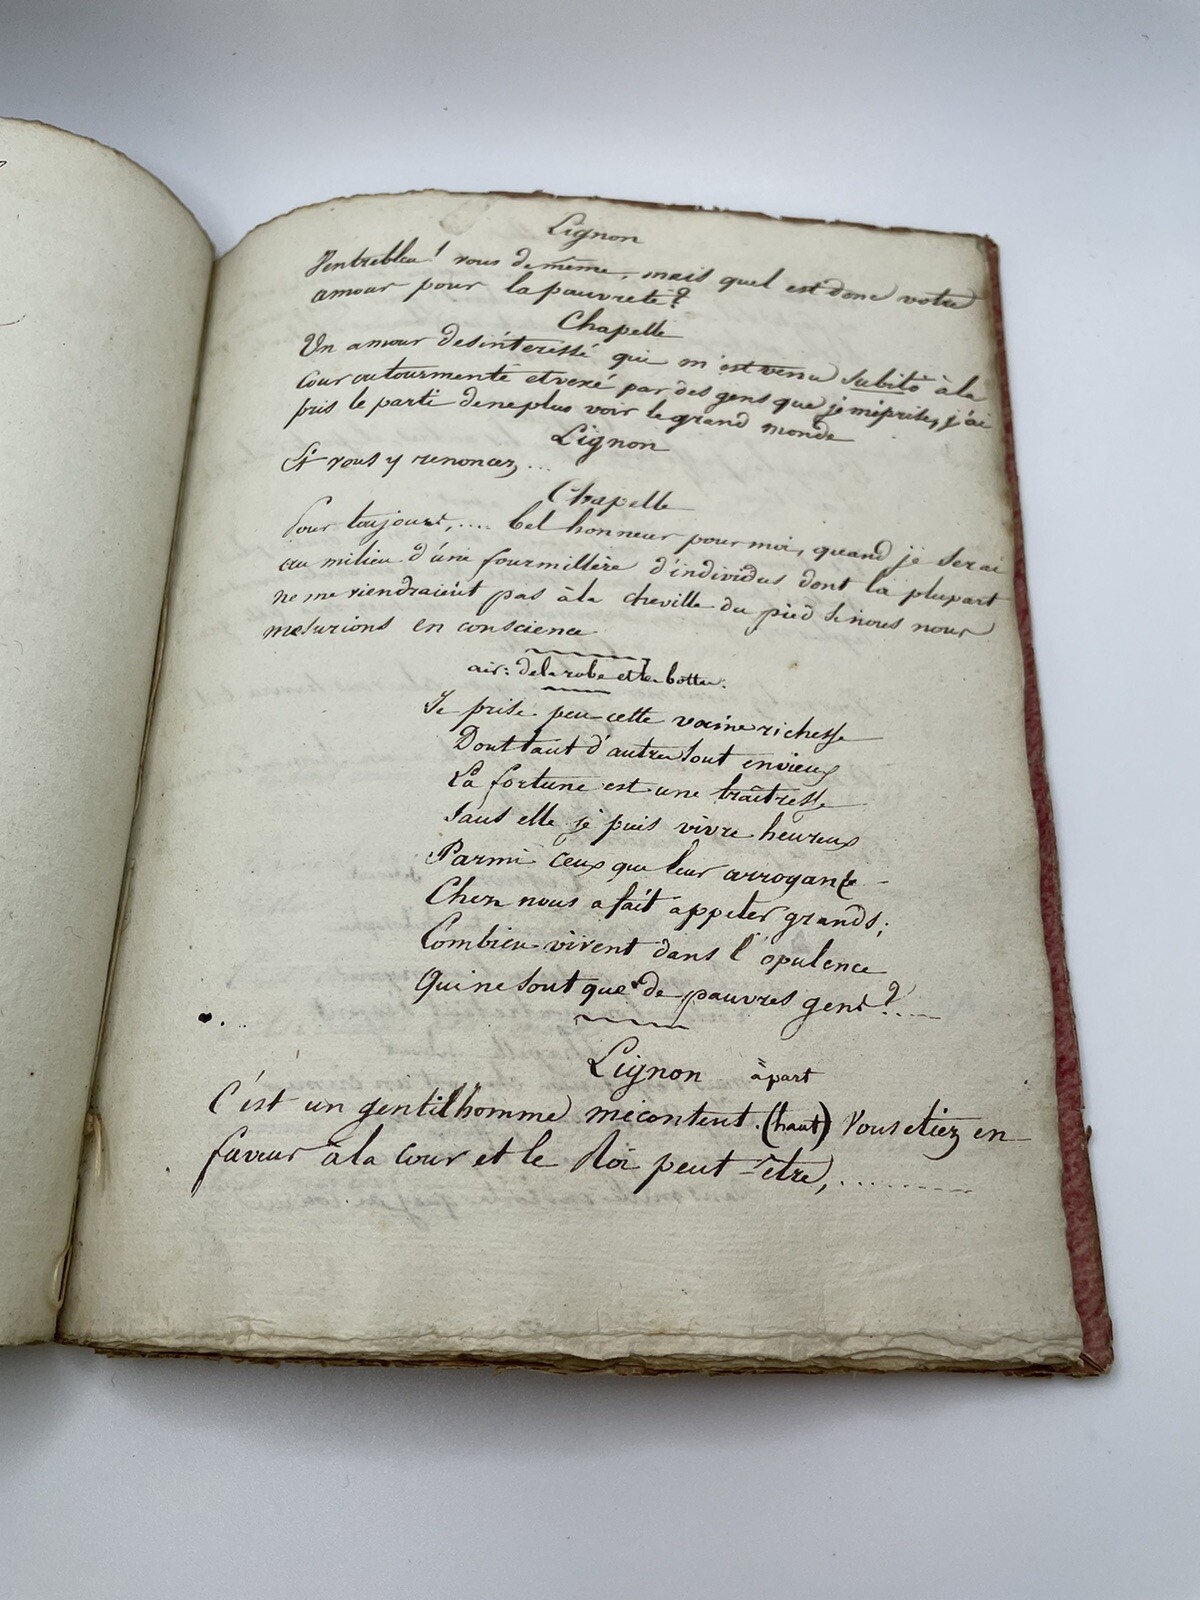 Lignon
Ventrebleu! vous de même, mais quel est donc votre
amour pour la pauvreté?
Chapelle
Un amour desintéressé qui m'est venu subitò à la
cour ou tourmenté et vexé par des gens que je méprise, j'ai
pris le parti de ne plus voir le grand monde
Lignon
Et vous y renoncez...
Chapelle
Pour toujours,.... bel honneur pour moi, quand je serai
au milieu d'une fourmillère d'individus dont la plupart
ne me viendraient pas à la cheville du pied si nous nous
mesurions en conscience
air: de la robe et les bottes.
Je prise peu cette vaine richesse
Dont tant d'autres sont envieux
La fortune est une traîtresse
Sans elle je puis vivre heureux
Parmi ceux que leur arrogance
Chez nous a fait appeler grands;
Combien vivent dans l'opulence
Qui ne sont que de pauvres gens?...
Lignon àpart
C'est un gentilhomme mécontent. (haut) Vous etiez en
faveur à la cour et le Roi peut-être,..........